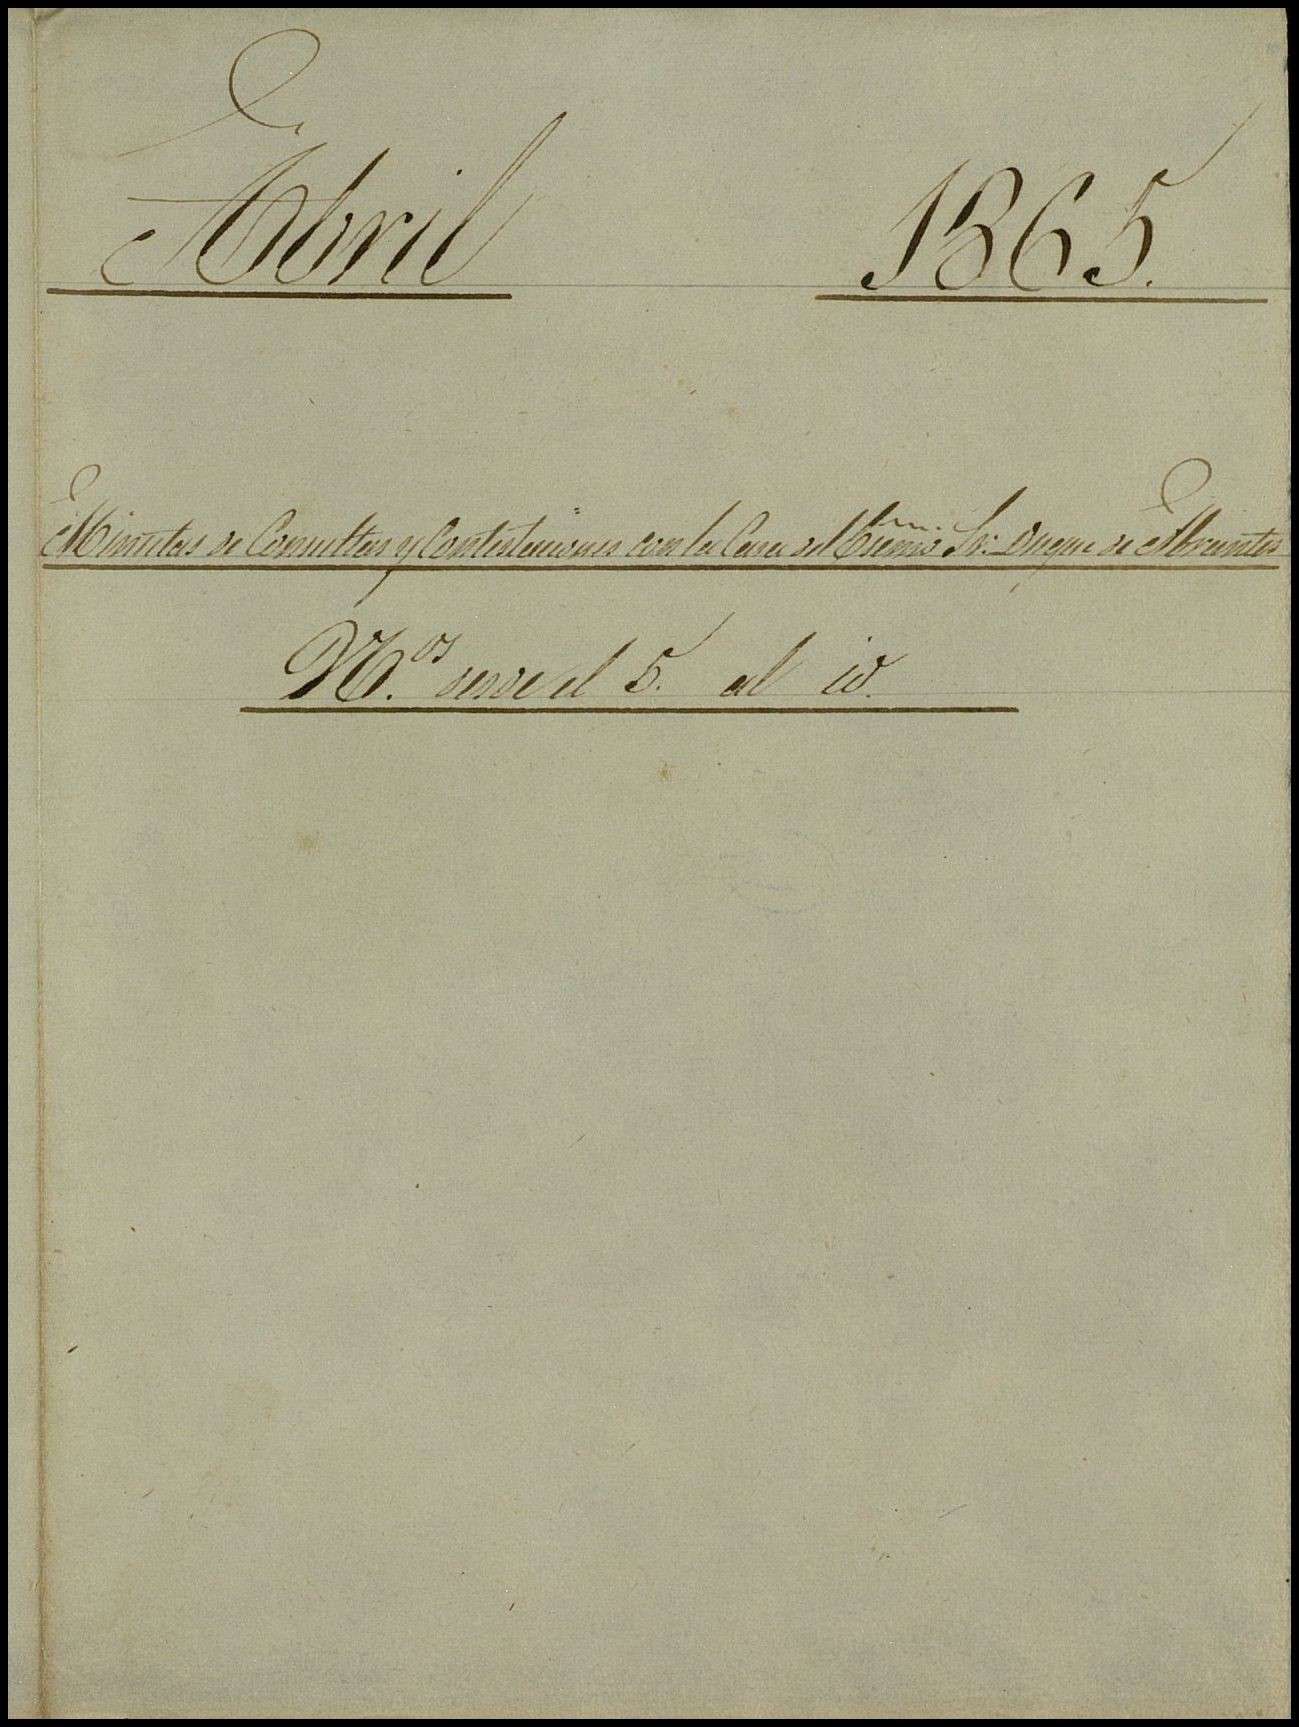 Abril 1865.
Minutas de Consultas y Contestaciones con la Casa del Excmo. Sr. Duque de Abrantes
N.os desde el 5. al 10.